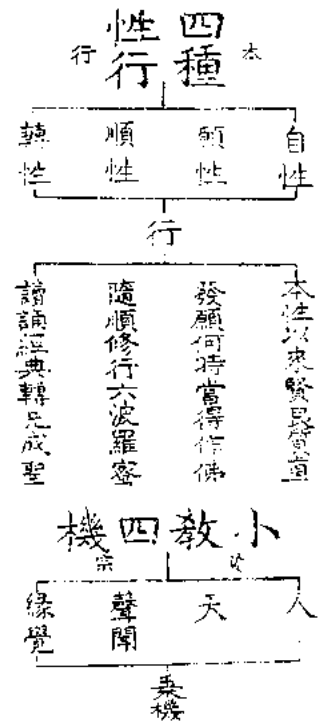 四種性行
本行
自性
願性
順性
轉性
行
本性以來賢良質直
發願何時當得作佛
隨順修行六波羅蜜
讀誦經典轉凡成聖
小教四機
宗
人
天
聲聞
緣覺
乘機